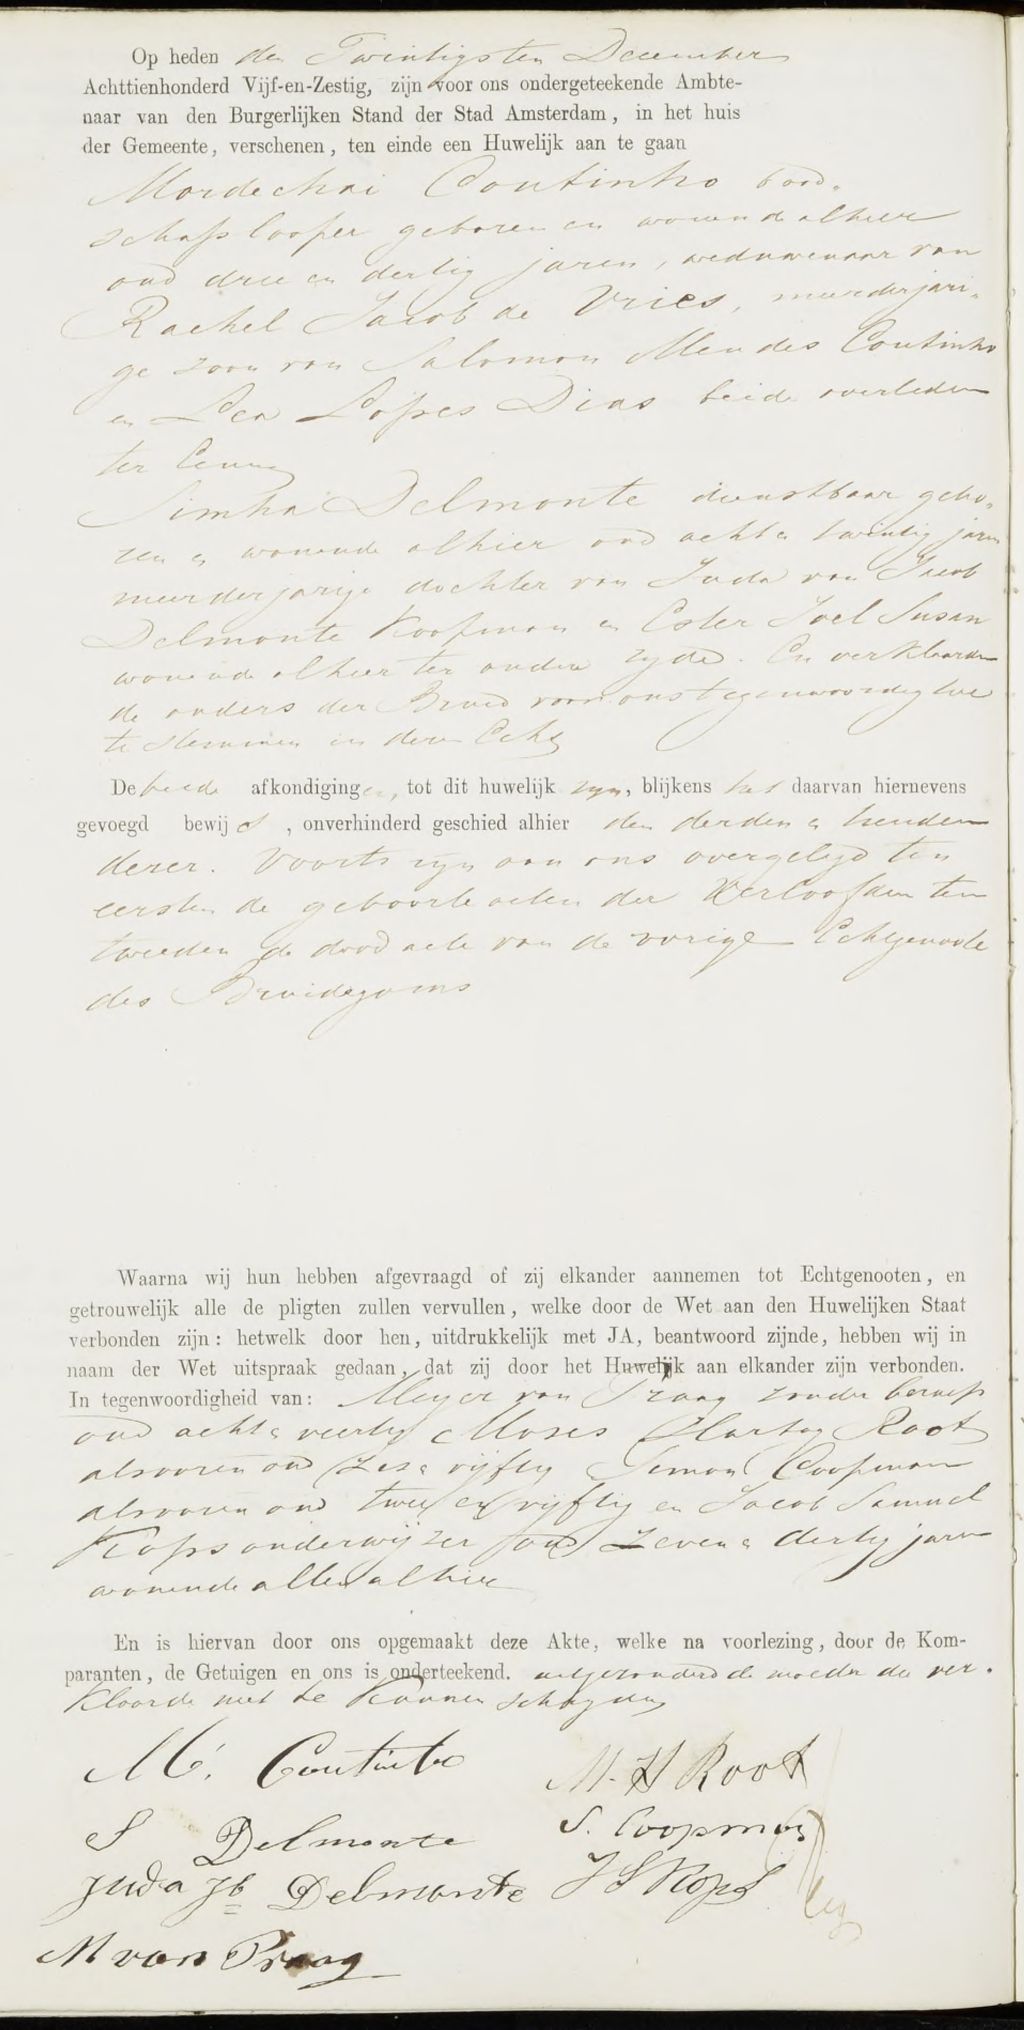 Op heden den Twintigsten December
Achttienhonderd Vijf-en-Zestig, zijn voor ons ondergeteekende Ambte-
naar van den Burgerlijken Stand der Stad Amsterdam, in het huis
der Gemeente, verschenen, ten einde een Huwelijk aan te gaan
Mordechai Coutinho bood-
schaplooper geboren en wonende alhier
oud drie en dertig jaren, weduwenaar van
Rachel Jacob de Vries, meerderjari-
ge zoon van Salomon Mendes Coutinho
en Lea Lopes Dias beide overleden
ter Eenre
Simha Delmonte dienstbaar gebo-
ren en wonende alhier oud acht en twintig jaren
meerderjarige dochter van Juda van Jacob
Delmonte Koopman en Ester Joel Susan
wonende alhier ter andere zyde. En verklaarden
de ouders der Bruid voor ons tegenwoordig toe
te stemmen in deze Echt
De beide afkondigingen, tot dit huwelijk zyn, blijkens het daarvan hiernevens
gevoegd bewijs, onverhinderd geschied alhier den derden en tienden
dezer. Voorts zyn aan ons overgelegd ten
eersten de geboorte acten der Verloofden ten
tweeden de dood acte van de vorige Echtgenoote
des Bruidegoms
Waarna wij hun hebben afgevraagd of zij elkander aannemen tot Echtgenooten, en
getrouwelijk alle de pligten zullen vervullen, welke door de Wet aan den Huwelijken Staat
verbonden zijn: hetwelk door hen, uitdrukkelijk met JA, beantwoord zijnde, hebben wij in
naam der Wet uitspraak gedaan, dat zij door het Huwelijk aan elkander zijn verbonden.
In tegenwoordigheid van: Meyer van Praag zonder beroep
oud acht en veertig Moses Hartog Root
alsvoren oud zes en vijftig Simon Coopman
alsvoren oud twee en vijftig en Jacob Samuel
Kops onderwijzer oud zeven en dertig jaren
wonende allen alhier
En is hiervan door ons opgemaakt deze Akte, welke na voorlezing, door de Kom-
paranten, de Getuigen en ons is onderteekend. uitgezonderd de moeder die ver-
klaarde niet te kunnen schryven
M. Coutinho
M. H Root
S Delmonte
S. Coopman
Juda Jb Delmonte
J S Kops
M van Praag